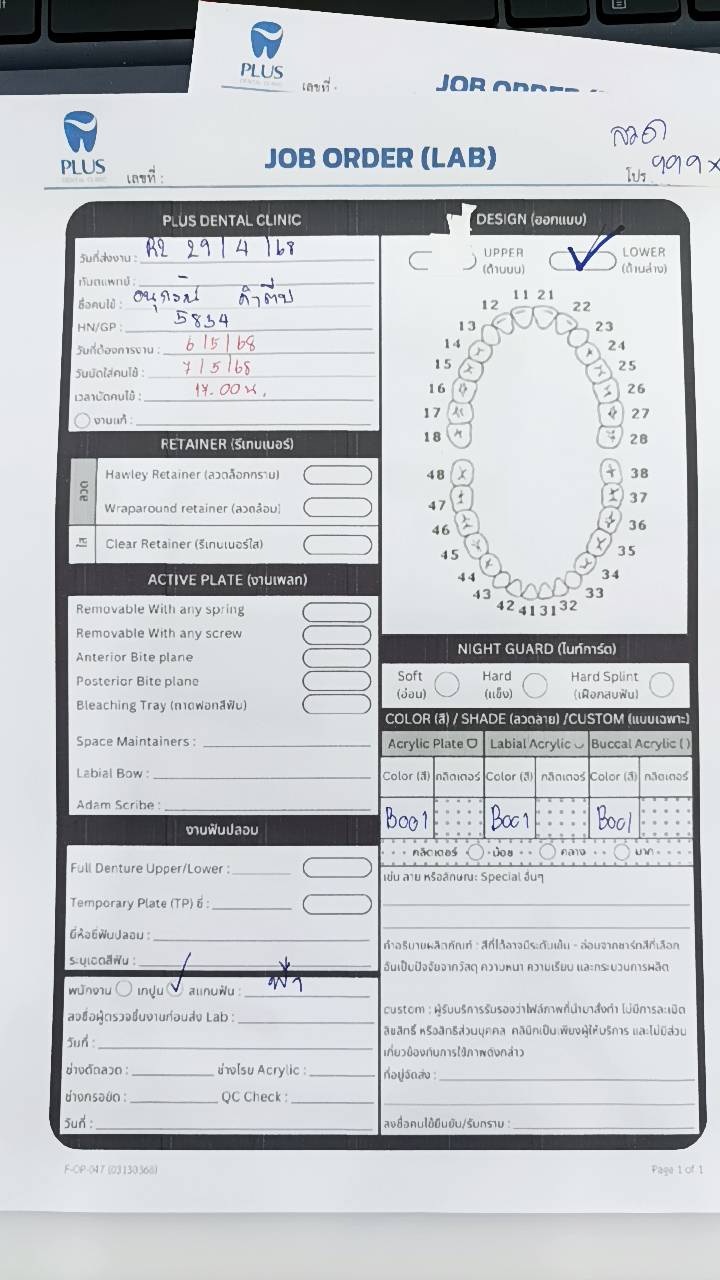 PLUS
DENTAL CLINIC
เลขที่ :
PLUS
DENTAL CLINIC
JOB ORDER (LAB)
ลวด
เลขที่ :
โปร 999 x
PLUS DENTAL CLINIC
วันที่ส่งงาน : R2 29 / 4 / 68
ทันตแพทย์ :
ชื่อคนไข้ :
HN/GP : 5834
วันที่ต้องการงาน : 6 / 5 / 68
วันนัดใส่คนไข้ : 7 / 5 / 68
เวลานัดคนไข้ : 17.00 น.
งานแก้ :
RETAINER (รีเทนเนอร์)
ลวด
Hawley Retainer (ลวดล็อกกราม)
Wraparound retainer (ลวดล้อม)
ใส
Clear Retainer (รีเทนเนอร์ใส)
ACTIVE PLATE (งานเพลท)
Removable With any spring
Removable With any screw
Anterior Bite plane
Posterior Bite plane
Bleaching Tray (ถาดฟอกสีฟัน)
Space Maintainers :
Labial Bow :
Adam Scribe :
งานฟันปลอม
Full Denture Upper/Lower :
Temporary Plate (TP) ซี่ :
ยี่ห้อซี่ฟันปลอม :
ระบุเฉดสีฟัน :
พนักงาน เทปูน สแกนฟัน : ฟ้า
ลงชื่อผู้ตรวจชิ้นงานก่อนส่ง Lab :
วันที่ :
ช่างดัดลวด : ช่างโรย Acrylic :
ช่างกรอขัด : QC Check :
วันที่ :
DESIGN (ออกแบบ)
UPPER
(ด้านบน)
LOWER
(ด้านล่าง)
11 21
12 22
13 23
14 24
15 25
16 26
17 27
18 28
48 38
47 37
46 36
45 35
44 34
43 33
42 41 31 32
NIGHT GUARD (ไนท์การ์ด)
Soft
(อ่อน)
Hard
(แข็ง)
Hard Splint
(เฝือกสบฟัน)
COLOR (สี) / SHADE (ลวดลาย) /CUSTOM (แบบเฉพาะ)
Acrylic Plate Labial Acrylic Buccal Acrylic ( )
Color (สี) กลิตเตอร์ Color (สี) กลิตเตอร์ Color (สี) กลิตเตอร์
B001 B001 B001
กลิตเตอร์ น้อย กลาง มาก
เช่น ลาย หรือลักษณะ Special อื่นๆ
คำอธิบายผลิตภัณฑ์ : สีที่ได้อาจมีระดับเข้ม - อ่อนจากชาร์ทสีที่เลือก
อันเป็นปัจจัยจากวัสดุ ความหนา ความเรียบ และกระบวนการผลิต
custom : ผู้รับบริการรับรองว่าไฟล์ภาพที่นำมาสั่งทำ ไม่มีการละเมิด
ลิขสิทธิ์ หรือสิทธิส่วนบุคคล คลินิกเป็นเพียงผู้ให้บริการ และไม่มีส่วน
เกี่ยวข้องกับการใช้ภาพดังกล่าว
ที่อยู่จัดส่ง :
ลงชื่อคนไข้ยืนยัน/รับทราบ :
F-OP-047 (03130368)
Page 1 of 1